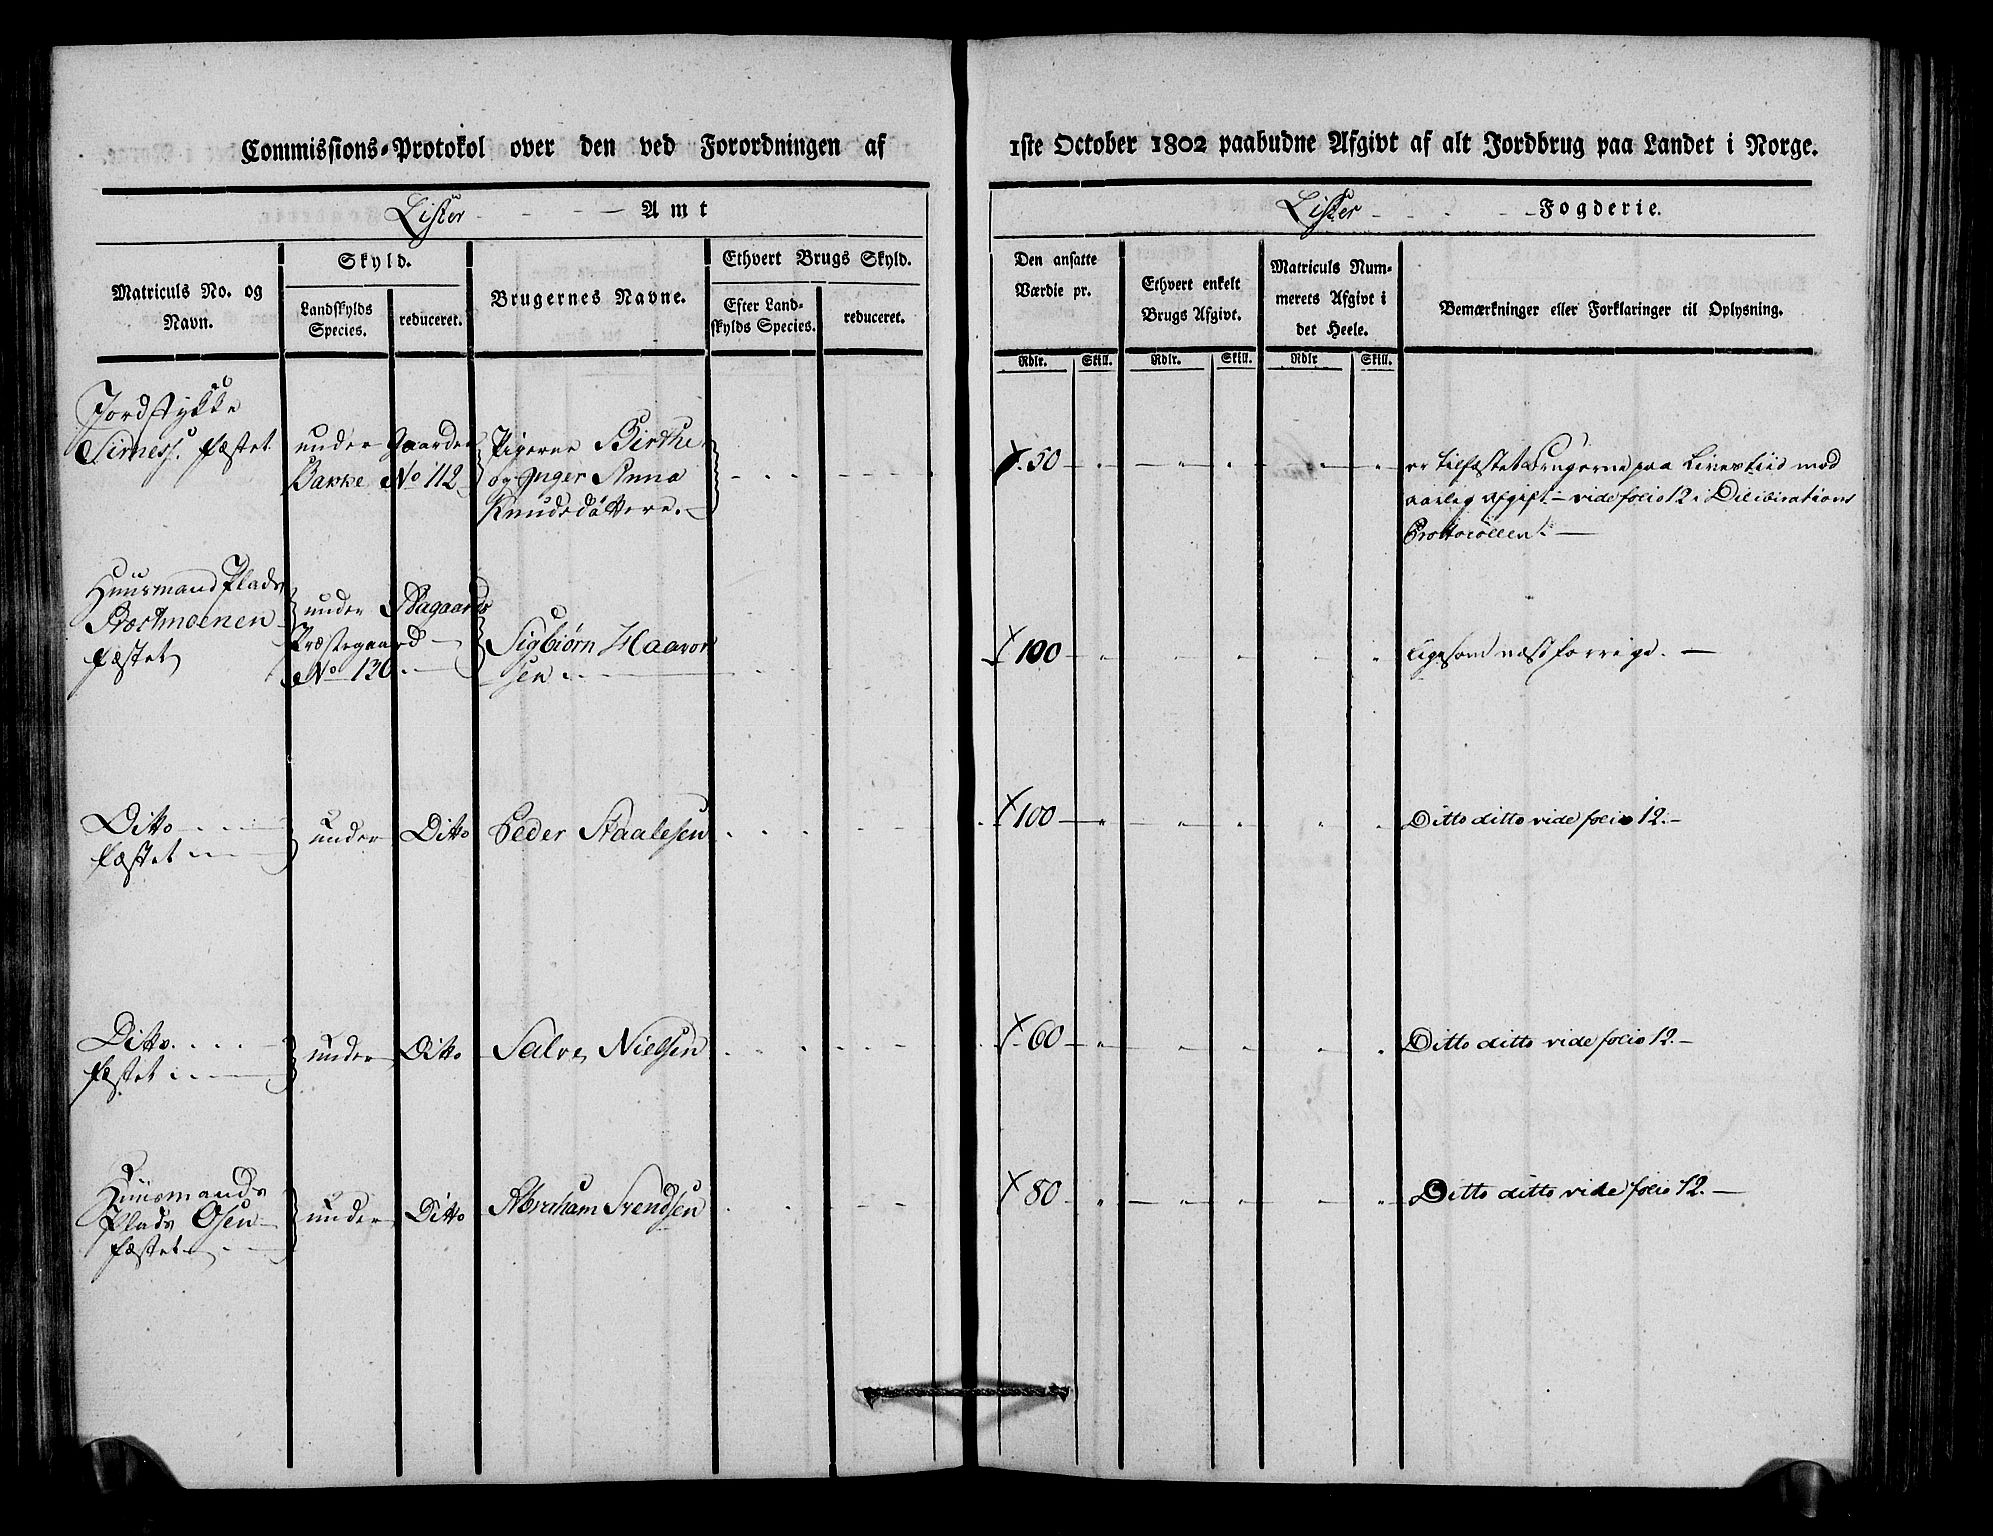 Commissions-Protokol over den ved Forordningen af 1ste October 1802 paabudne Afgivt af alt Jordbrug paa Landet i Norge.
Lister Amt
Lister Fogderie.
Matriculs No. og Navn.
Skyld.
Landskylds Species.
reduceret.
Brugernes Navne.
Ethvert Brugs Skyld.
Efter Landskylds Species.
reduceret.
Den ansatte Værdie pr.
Ethvert enkelt Brugs Afgivt.
Matriculs Nummerets Afgivt i det Heele.
Bemærkninger eller Forklaringer til Oplysning.
Rdlr. Skill. Rdlr. Skill. Rdlr Skill.
Jordstykke
Sirness. fæstet under Gaarden Pigerne Birthe 50
Bakke No 112 og Inger Anna
Knudsdøttere.
er tilfæstet Brugerne paa Livestiid mod
aarlig Afgift - vide folio 12 i Dilibirations
Prottocollen.
Huusmand Plads
Præstmoenen
fæstet
under Bagaards
Præstegaard
No 130
Sigbiørn Haavor
sen
100
ligesom næst forrige.
Ditto
fæstet
under Ditto Peder Staalesen 100 Ditto ditto vide folio 12.
Ditto
fæstet
under Ditto Salve Nielsen 60 Ditto ditto vide folio 12.
Huusmands
Plads Osen
fæstet
under Ditto Abraham Svendsen 80 Ditto ditto vide folio 12.